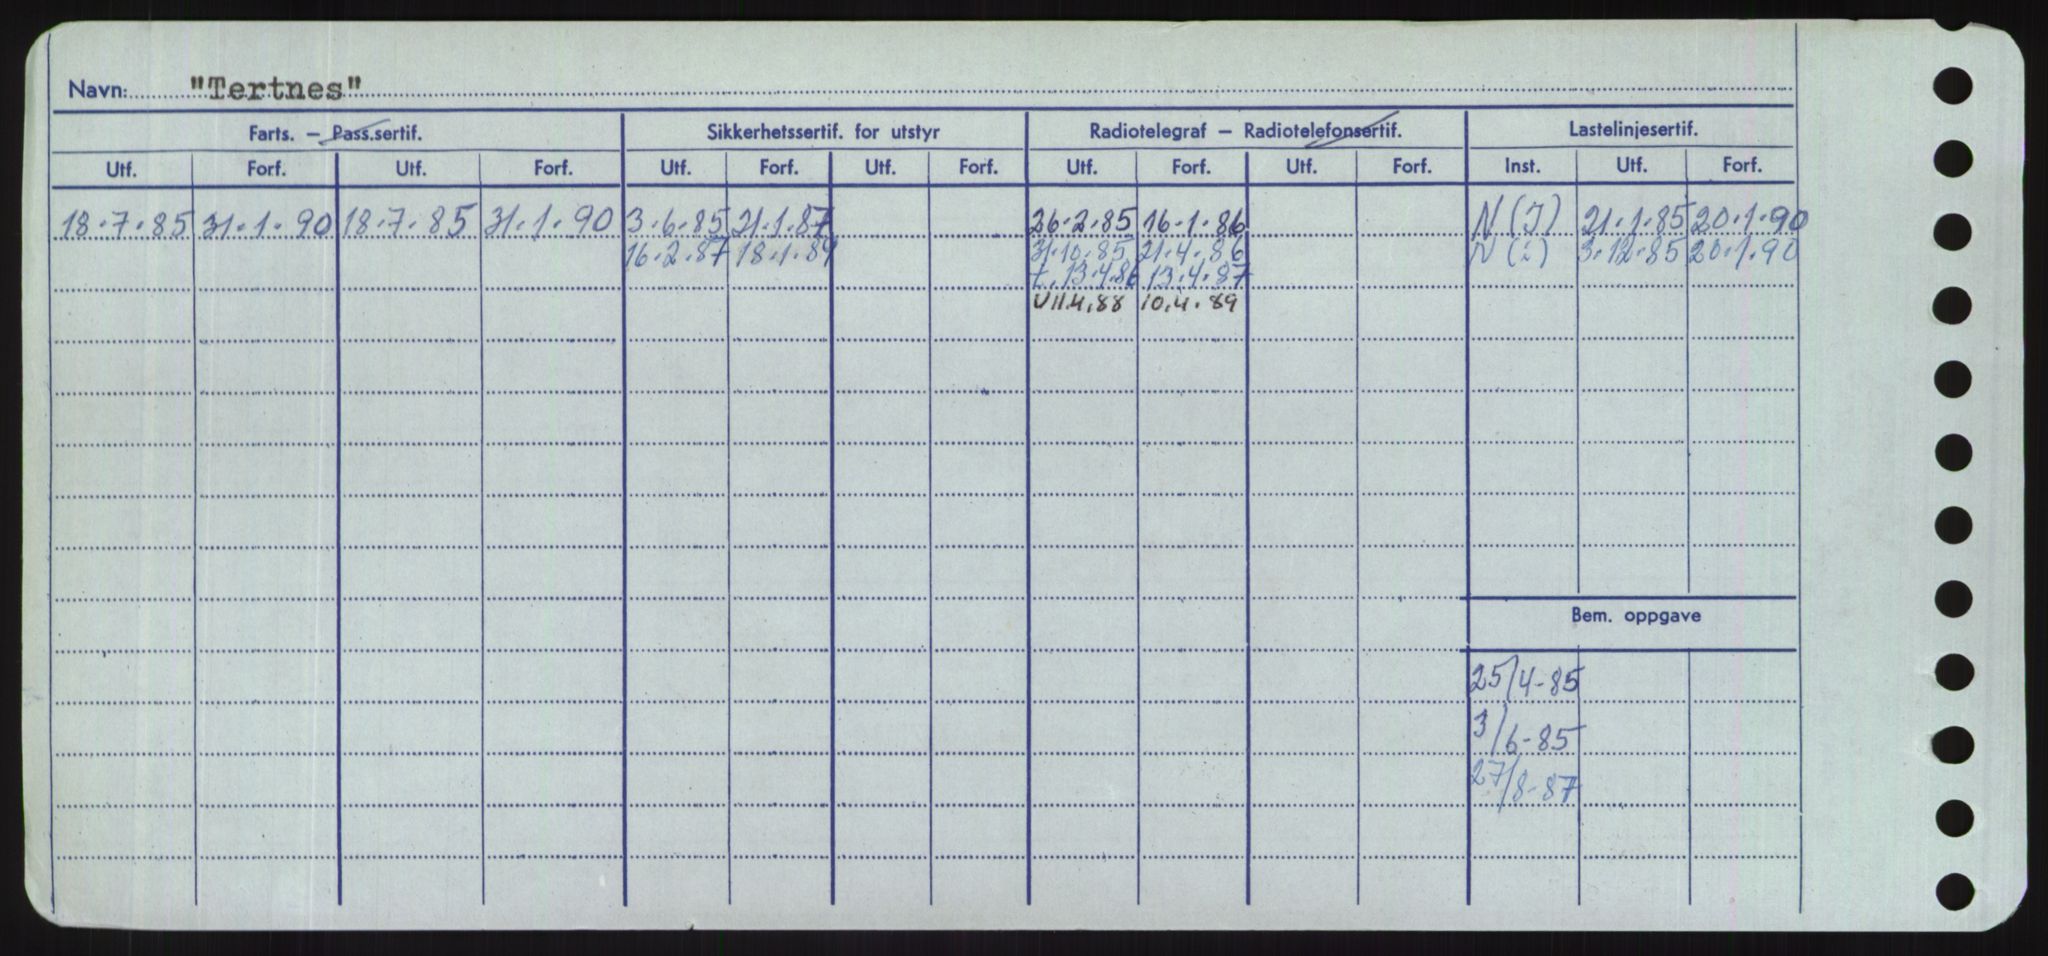 Navn: "Tertnes"
Farts. — Pass.sertif. Sikkerhetssertif. for utstyr Radiotelegraf — Radiotelefonsertif. Lastelinjesertif.
Utf. Forf. Utf. Forf. Utf. Forf. Utf. Forf. Utf. Forf. Utf. Forf. Inst. Utf. Forf.
18.7.85 31.1.90 18.7.85 31.1.90 3.6.85 21.1.87 26.2.85 16.1.86 N (I) 21.1.85 20.1.90
16.2.87 18.1.89 31.10.85 21.4.86 N (i) 3.12.85 20.1.90
t. 13.4.86 13.4.87
V11.4.88 10.4.89
Bem. oppgave
25/4-85
3/6-85
27/8-87